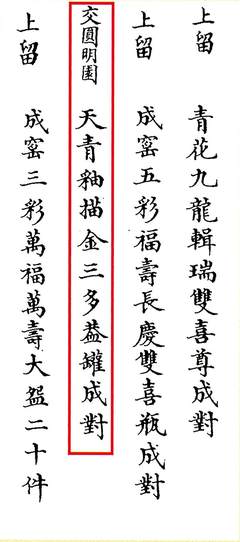 上留　青花九龍輯瑞雙喜尊成對
上留　成窑五彩福壽長慶雙喜瓶成對
交圓明園　天青釉描金三多葢罐成對
上留　成窑三彩萬福萬壽大盌二十件